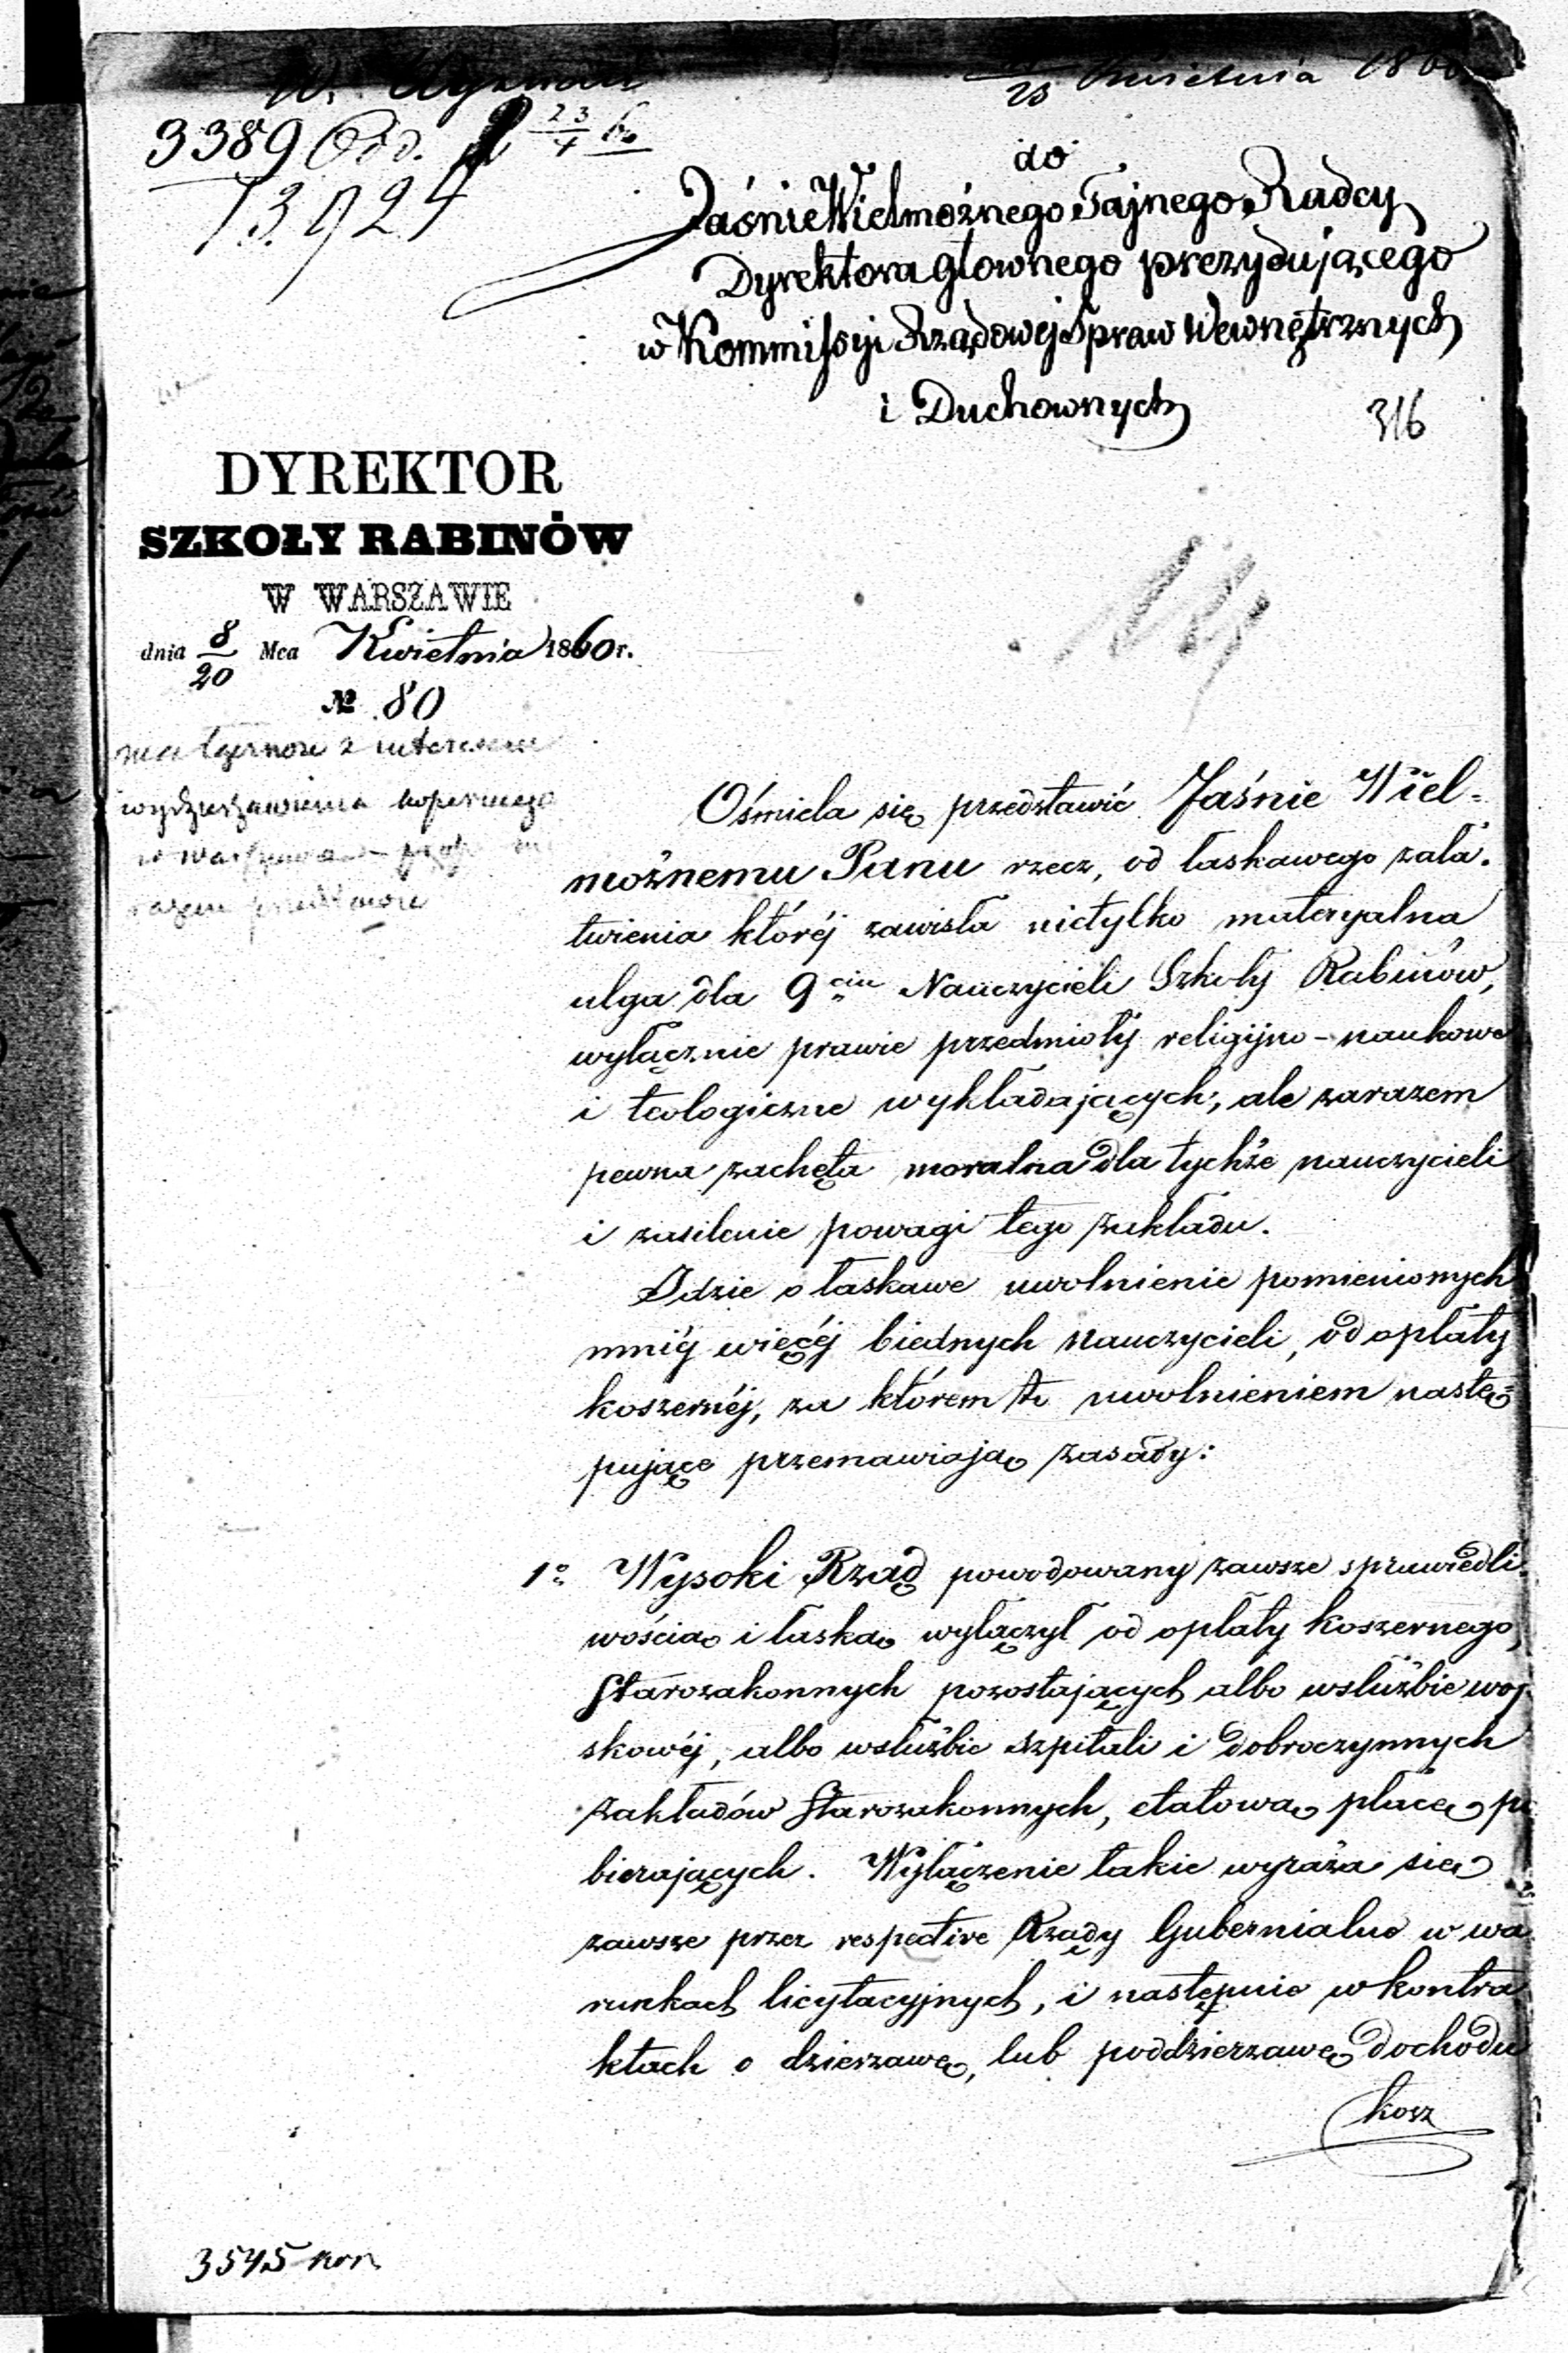 Kwietnia 186
25
3389 Odd. 23/4 60
13,924
do
Jaśnie Wielmożnego Tajnego Radcy
Dyrektora głownego prezydującego
w Kommissyi Rządowej Spraw Wewnętrznych
i Duchownych
316
DYREKTOR
SZKOŁY RABINÓW
W WARSZAWIE
dnia 8/20 Mca Kwietnia 1860 r.
№ 80
z interesem
wydzierżawienia kosernego
w
razem
Ośmiela się przedstawić Jaśnie Wiel=
możnemu Panu rzecz, od łaskawego zała-
twienia któréj zawisła nietylko materyalna
ulga dla 9ciu Nauczycieli Szkoły Rabinów,
wyłącznie prawie przedmioty religijno-naukowe
i teologiczne wykładających, ale zarazem
pewna zachęta moralna dla tychże nauczycieli
i zasilenie powagi tego zakładu.
Idzie o łaskawe uwolnienie pomienionych
mniéj więcéj biednych nauczycieli, od opłaty
koszernéj, za którem to uwolnieniem nastę=
pujące przemawiają zasady:
1o Wysoki Rząd powodowany zawsze sprawiedli-
wością i łaską wyłączył od opłaty koszernego,
Starozakonnych pozostających albo wsłużbie woj-
skowéj, albo wsłużbie szpitali i dobroczynnych
zakładów Starozakonnych, etatową płacę po
bierających. Wyłączenie takie wyraża się
zawsze przez respective Rządy Gubernialne w wa
runkach licytacyjnych, i następnie w kontra
ktach o dzierzawę, lub poddzierzawę dochodu
kosz
3545